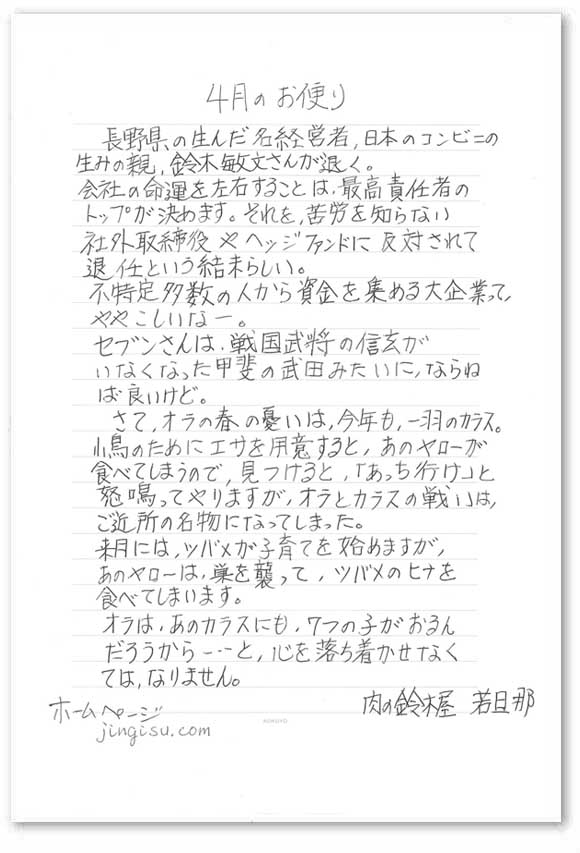 4月のお便り
長野県の生んだ名経営者,日本のコンビニの
生みの親,鈴木敏文さんが退く。
会社の命運を左右することは、最高責任者の
トップが決めます。それを,苦労を知らない
社外取締役やヘッジファンドに反対されて
退任という結末らしい。
不特定多数の人から資金を集める大企業って,
ややこしいなー。
セブンさんは、戦国武将の信玄が
いなくなった甲斐の武田みたいに,ならね
ば良いけど。
さて,オラの春の憂いは,今年も,一羽のカラス。
小鳥のためにエサを用意すると,あのヤローが
食べてしまうので,見つけると,「あっち行け」と
怒鳴ってやりますが,オラとカラスの戦いは,
ご近所の名物になってしまった。
来月には,ツバメが子育てを始めますが,
あのヤローは,巣を襲って,ツバメのヒナを
食べてしまいます。
オラは,あのカラスにも,7つの子がおるん
だろうから…と,心を落ち着かせなく
ては,なりません。
肉の鈴木屋 若旦那
ホームページ
jingisu.com
KOKUYO